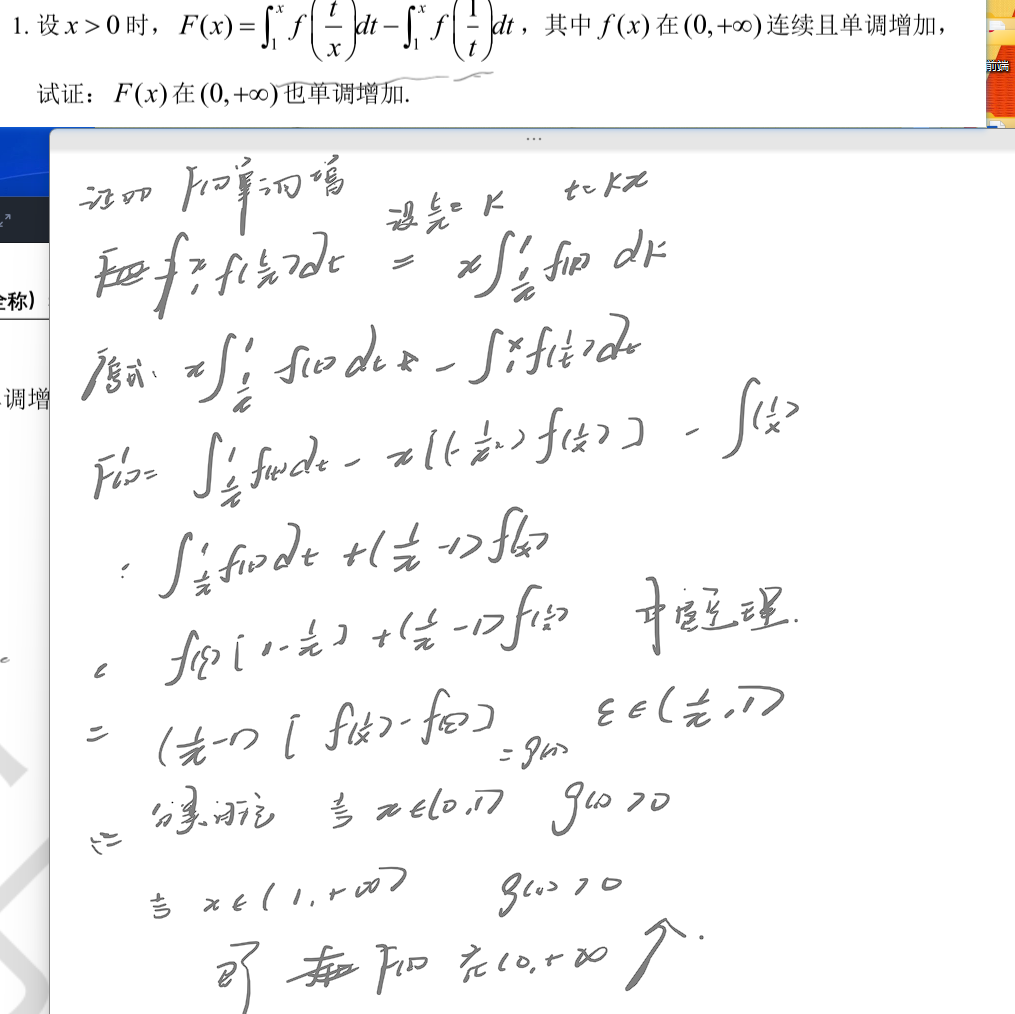 1. 设 x > 0 时，F(x) = ∫₁ˣ f(t/x)dt − ∫₁ˣ f(1/t)dt，其中 f(x) 在 (0,+∞) 连续且单调增加，
前端
试证：F(x) 在 (0,+∞) 也单调增加.
证明 F(x)单调增
设 t/x = K t = Kx
∫₁ˣ f(t/x)dt = x∫_{1/x}^1 f(K) dK
全称)
原式: x∫_{1/x}^1 f(t)dt − ∫₁ˣ f(1/t)dt
调增
F'(x) = ∫_{1/x}^1 f(t)dt − x[(-1/x²) f(1/x)] − f(1/x)
: ∫_{1/x}^1 f(t)dt + (1/x − 1) f(1/x)
f(ξ)[1 − 1/x] + (1/x − 1) f(1/x) 中值定理.
= (1/x − 1) [f(1/x) − f(ξ)] ξ ∈ (1/x, 1)
= g(x)
分类讨论 当 x ∈ (0,1) g(x) > 0
当 x ∈ (1,+∞) g(x) > 0
即 F(x) 在 (0,+∞ ↑.